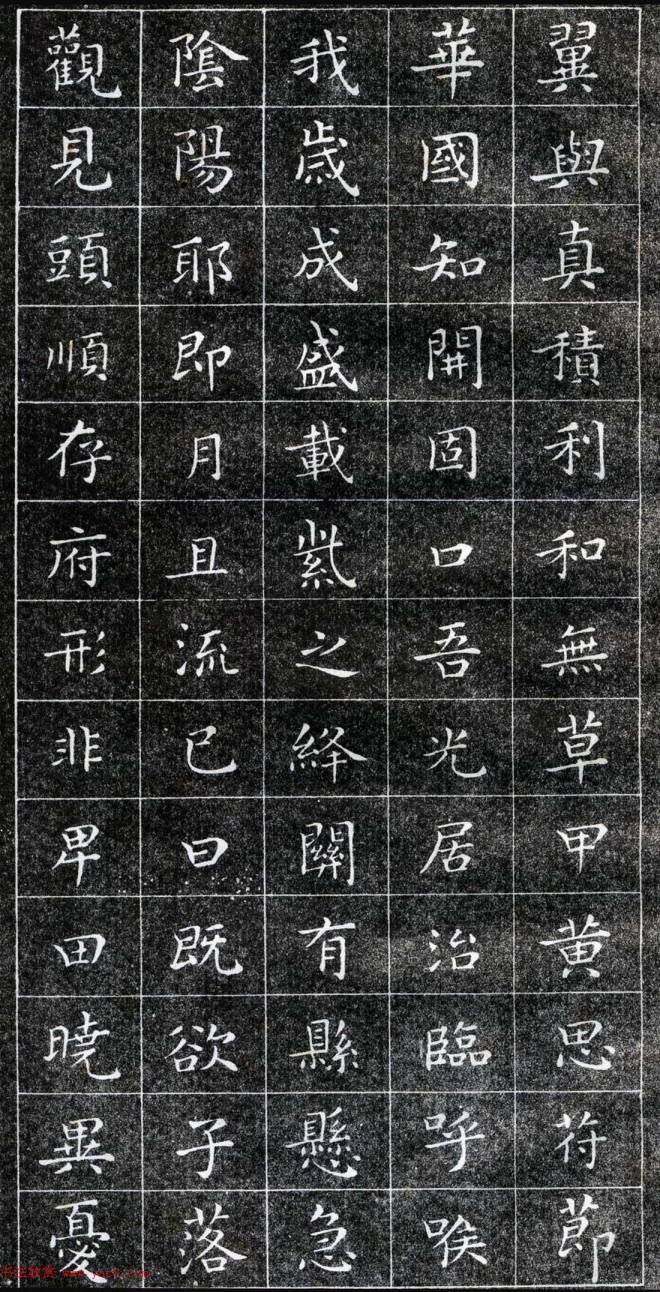 翼與真積利和無草甲黄思苻莭
華國知開固口吾光居治臨呼喉
我歲成盛載紫之絳關有縣懸急
陰陽耶即月且流已曰既欲子落
觀見頭順存府形非卑田曉異憂